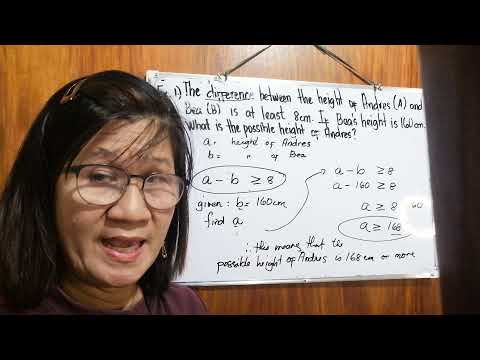 1) The difference between the height of Andres (A) and
Bea (B) is at least 8cm. If Bea's height is 160cm.
What is the possible height of Andres?
a = height of Andres
b = " of Bea
a - b ≥ 8
given : b = 160cm
find a
a - b ≥ 8
a - 160 ≥ 8
a ≥ 8 60
a ≥ 168
∴ this means that the
possible height of Andres is 168 cm or more